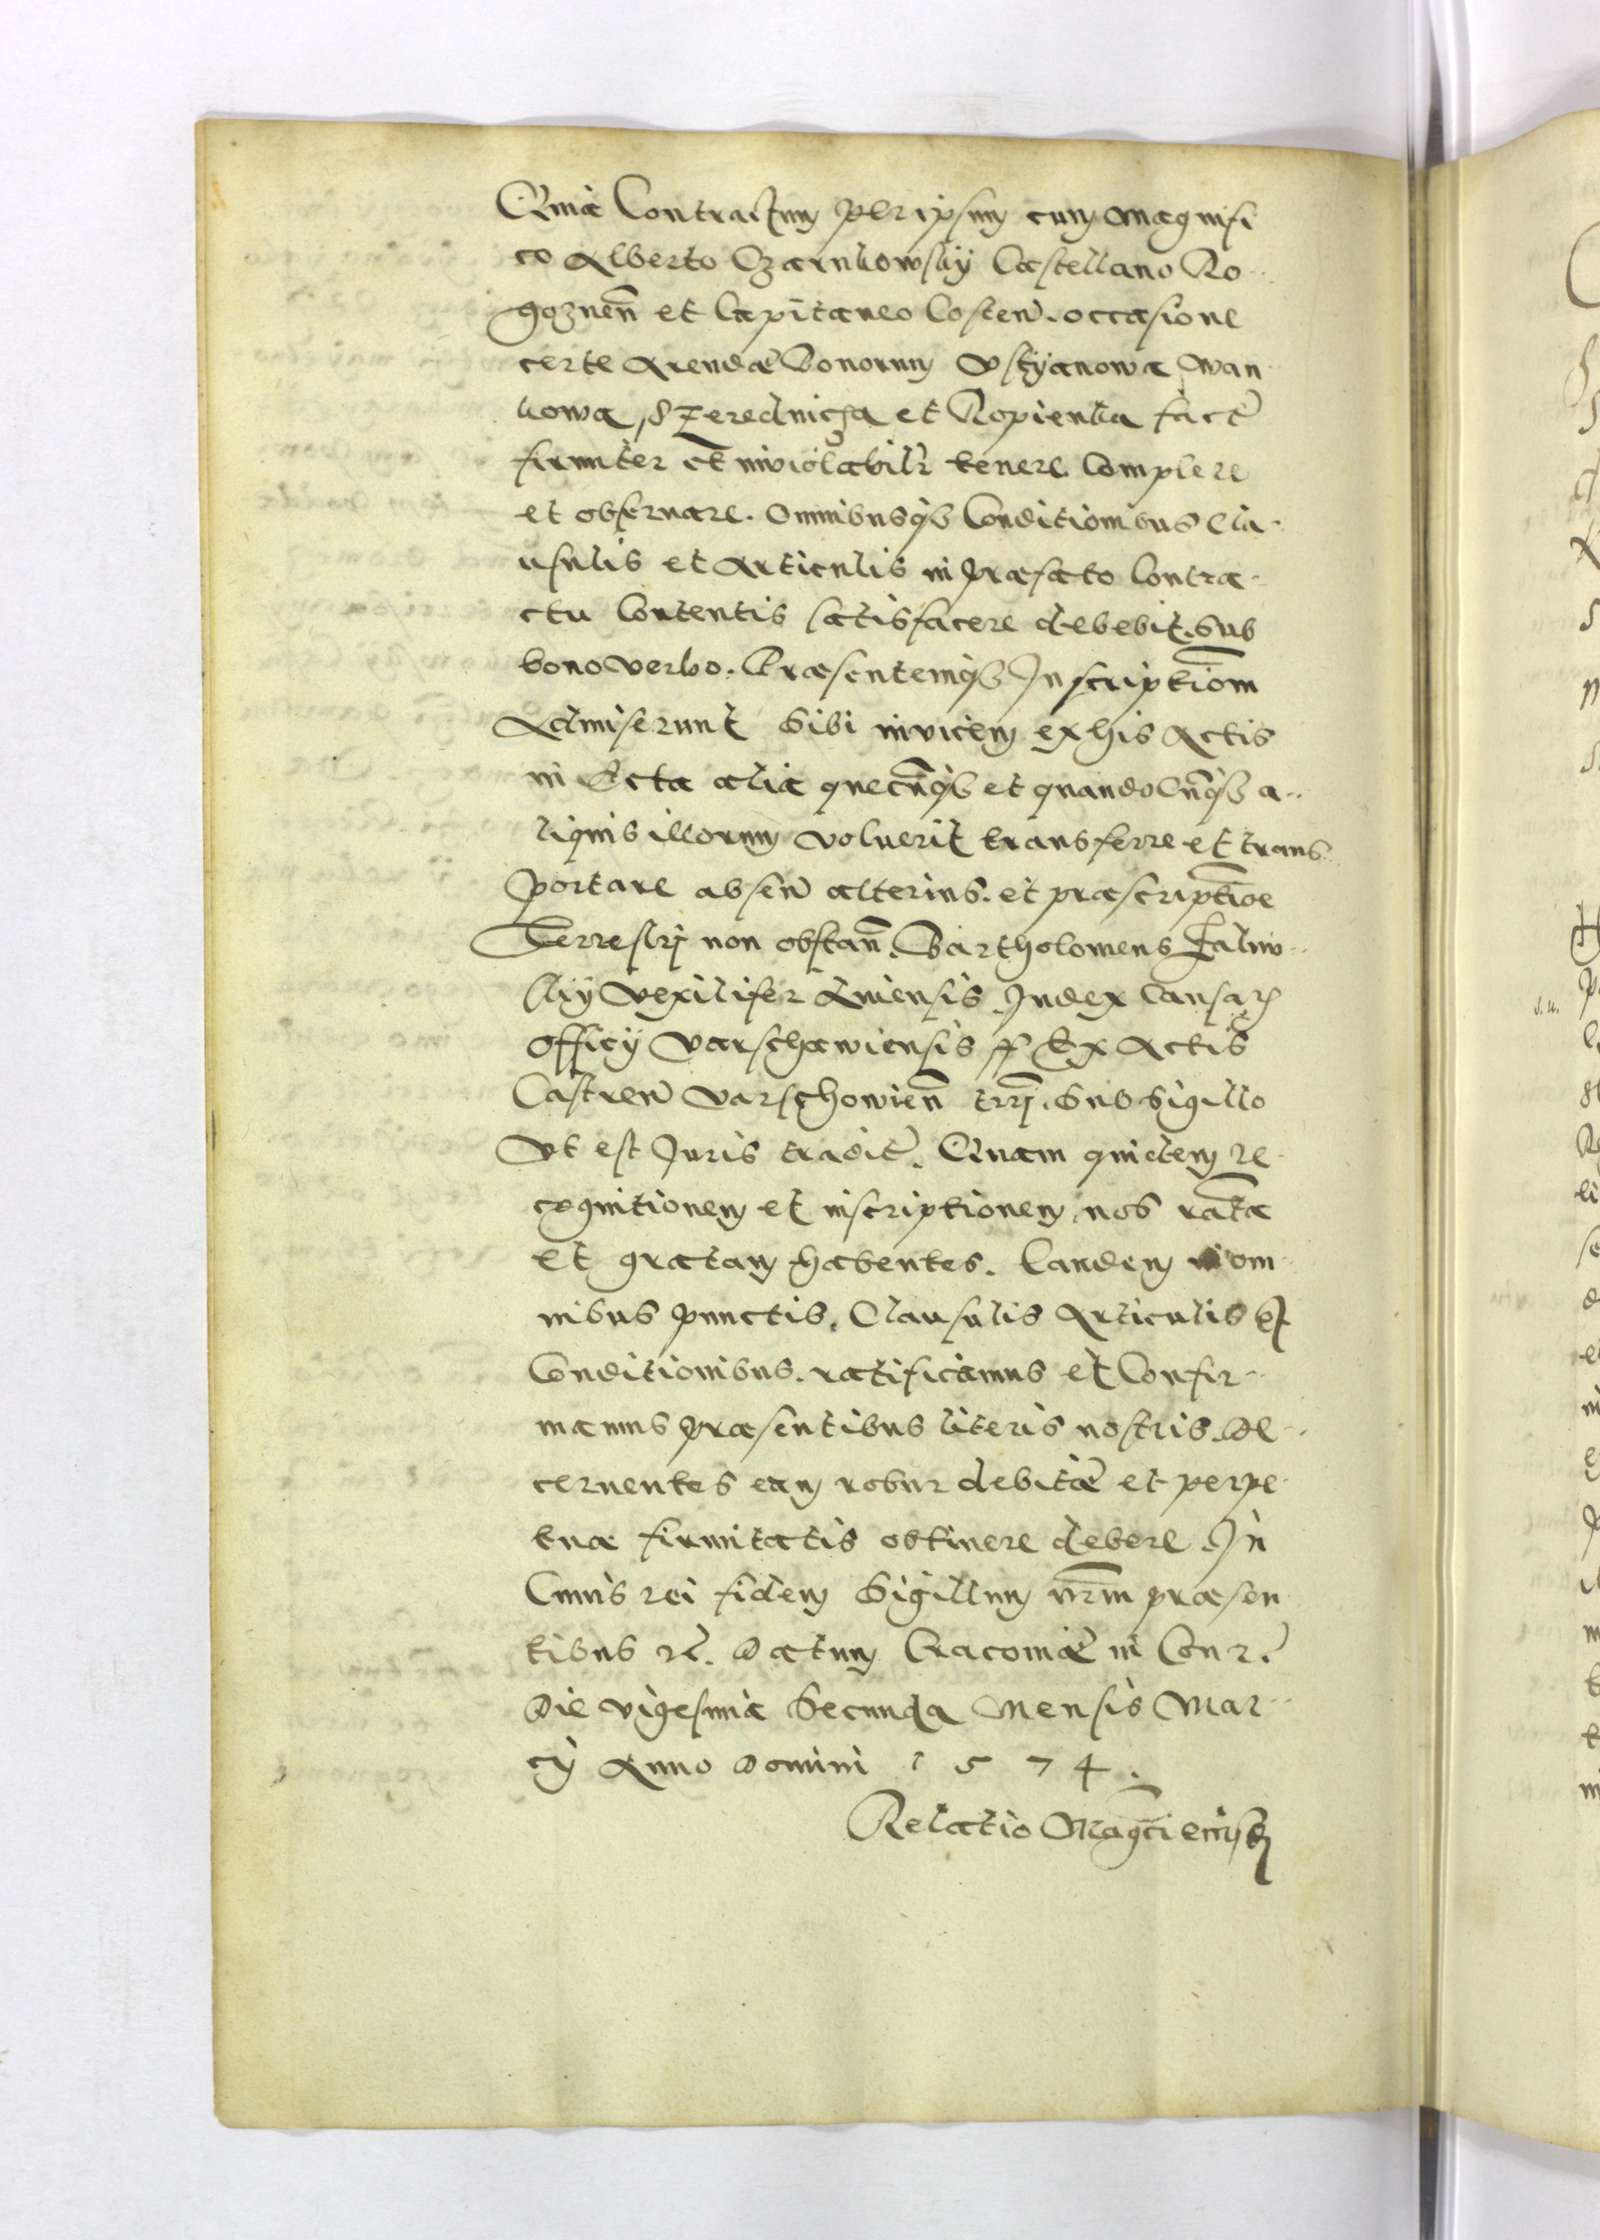 Quia Contractum per ipsum cum Magnifi
co Alberto Czarnkowsky Castellano Ro..
goznen et Capitaneo Costen. occasione
certe Arendæ Bonorum Vstyanowa Wan
kowa, Szerednicza et Ropienka fact
firmiter et inviolabilr tenere Complere
et observare. Omnibusq Conditionibus Cla..
usulis et Articulis in præfato Contra..
ctu Contentis satisfacere debebit. Sub
bono verbo. Præsentemq Inscriptiom
Admiserunt Sibi invicem ex his Actis
in Acta alia quecunq et quandocunq a..
liquis illorum voluerit transferre et trans..
portare absen alterius. et præscriptioe
Terrestrj non obstan. Bartholomeus
Vexilifer Judex Causar
officy Varschawiensis Ex Actis
Castren Varschowien Sub Sigillo
Vt est Juris tradit. Quam quidem re
cognitionem et inscriptionem nos rata
et gratam habentes. Eandem in om
nibus punctis, Clausulis Articulis et
Conditionibus. ratificamus et Confir..
mamus præsentibus literis nostris. De..
cernentes eam robur debitæ et perpe
tuæ firmitatis obtinere debere. In
Cuius rei fidem Sigillum nrm præsen
tibus rc. Datum Cracoviæ in Con r.
Die vigesima Secunda Mensis Mar..
cy Anno Domini 1574.
Relatio Magci